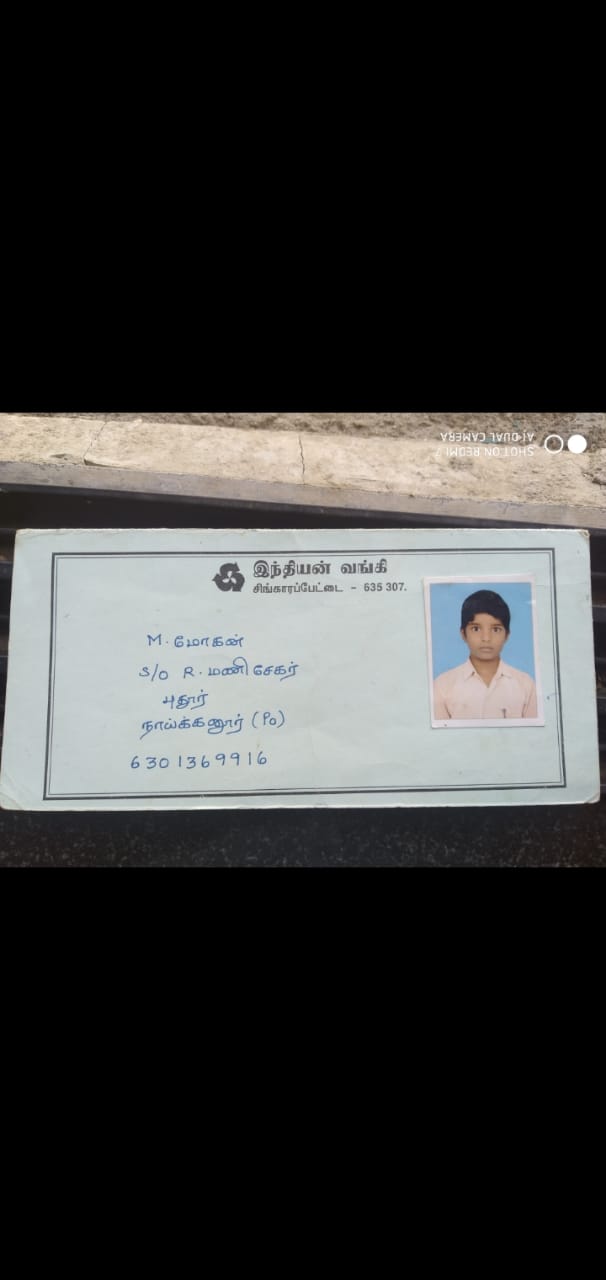 SHOT ON REDMI 7
AI DUAL CAMERA
இந்தியன் வங்கி
சிங்காரப்பேட்டை - 635 307.
M. மோகன்
S/O R. மணி சேகர்
புதூர்
நாய்க்கனூர் (Po)
6301369916